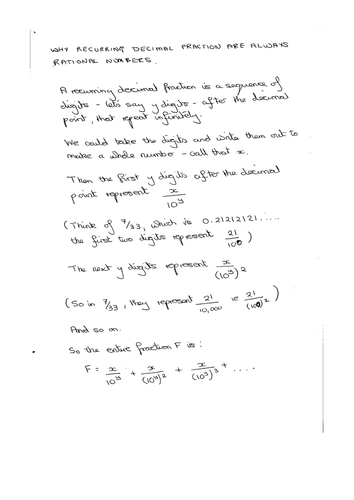 WHY RECURRING DECIMAL FRACTION ARE ALWAYS
RATIONAL NUMBERS.
A recurring decimal fraction is a sequence of
digits - let's say y digits - after the decimal
point, that repeat infinitely.
We could take the digits and write them out to
make a whole number - call that x.
Then the first y digits after the decimal
point represent x/10^y
(Think of 7/33, which is 0.21212121.....
the first two digits represent 21/100)
The next y digits represent x/(10^y)^2
(So in 7/33, they represent 21/10,000 ie 21/(100)^2)
And so on.
So the entire fraction F is:
F = x/10^y + x/(10^y)^2 + x/(10^y)^3 + ....